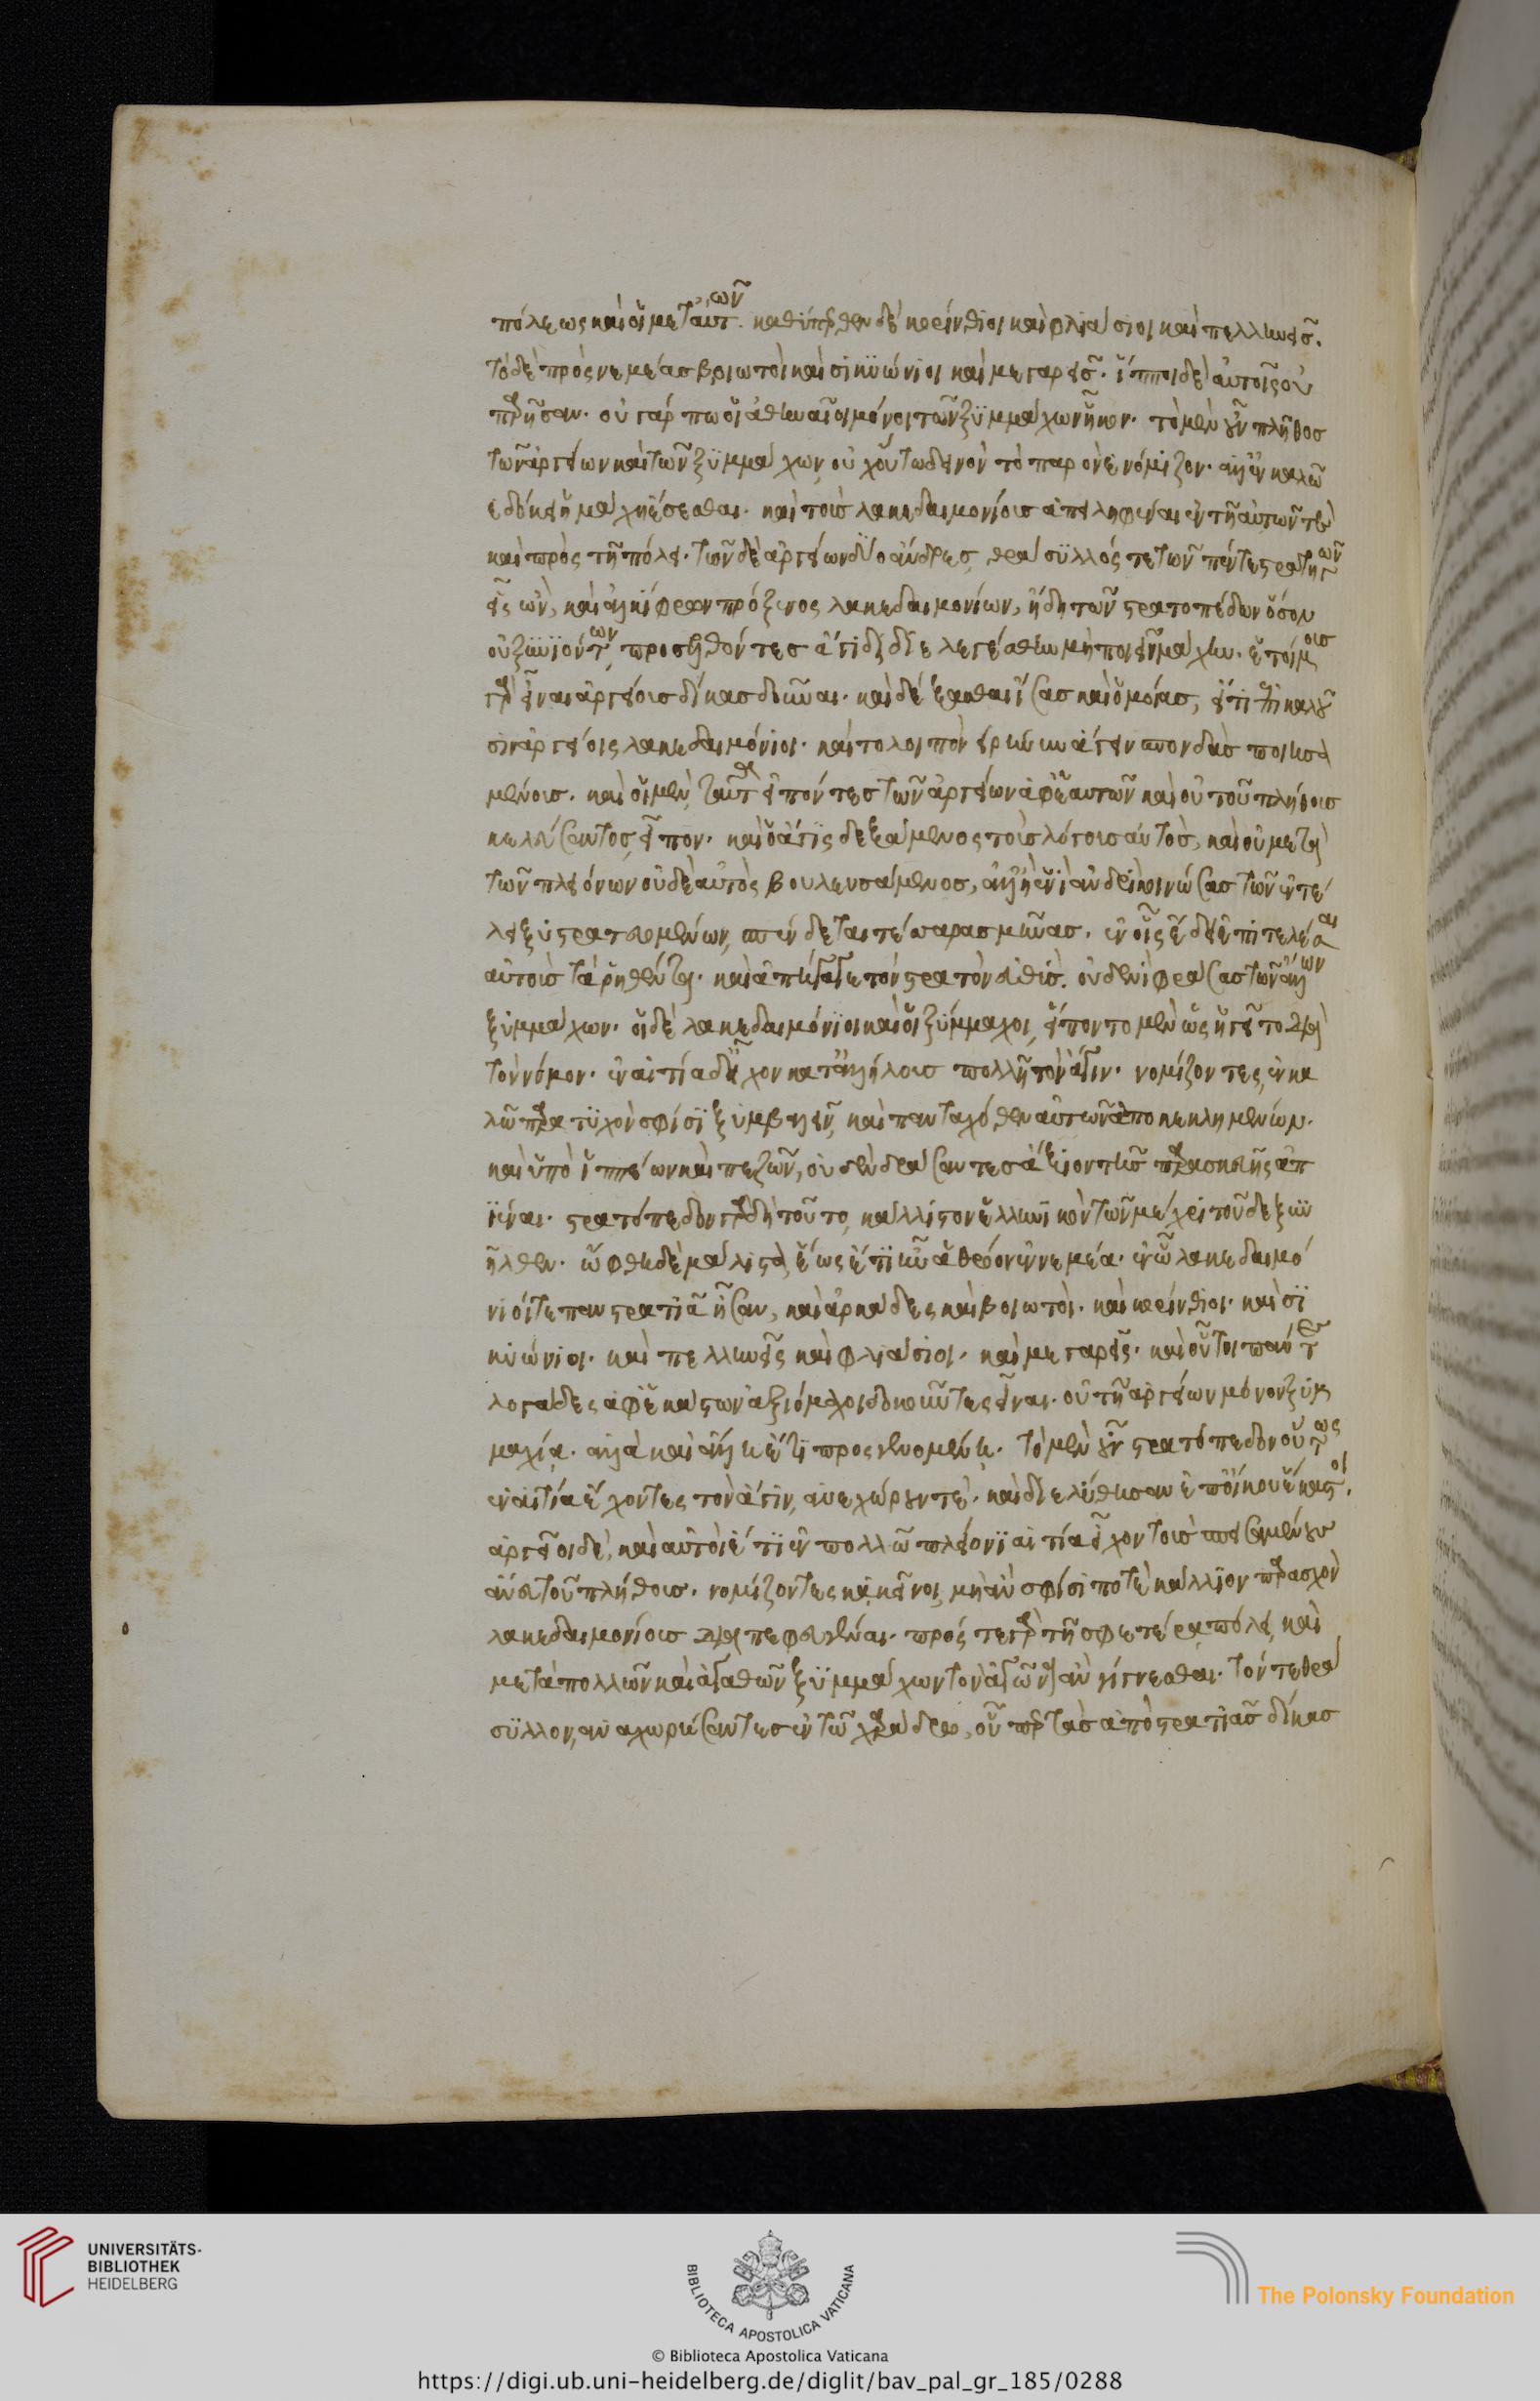 πόλεως καὶ οἱ μετ' αὐτῶν. καθύπερθεν δὲ κορίνθιοι καὶ φλιάσιοι καὶ πελληνεῖς.
τὸ δὲ πρὸς νεμέας βοιωτοὶ καὶ σικυώνιοι καὶ μεγαρεῖς. ἵπποι δὲ αὐτοῖς οὐ
παρῆσαν. οὐ γάρ πω οἱ ἀθηναῖοι μόνοι τῶν ξυμμάχων ἧκον. τὸ μὲν οὖν πλῆθος
τῶν ἀργείων καὶ τῶν ξυμμάχων, οὐχ οὕτω δεινὸν τὸ παρὸν ἐνόμιζον. ἀλλ' ἐν καλῶ
ἐδόκει ἡ μάχη ἔσεσθαι. καὶ τοὺς λακεδαιμονίους ἀπειληφέναι ἐν τῆ αὑτῶν τε
καὶ πρὸς τῆ πόλει. τῶν δὲ ἀργείων δύο ἄνδρες, θράσυλλός τε τῶν πέντε στρατηγῶν
εἷς ὢν, καὶ ἀλκίφρων πρόξενος λακεδαιμονίων, ἤδη τῶν στρατοπέδων ὅσον
οὐ ξυνιόντων, προσελθόντες ἄγιδι διελεγέσθην μὴ ποιεῖν μάχην. ἑτοίμους
γὰρ εἶναι ἀργείους δίκας δοῦναι. καὶ δέξασθαι ἴσας καὶ ὁμοίας, εἴ τι ἐπικαλοῦ
σιν ἀργείοις λακεδαιμόνιοι. καὶ τὸ λοιπὸν εἰρήνην ἄγειν σπονδὰς ποιησα
μένους. καὶ οἱ μὲν ταῦτα εἰπόντες τῶν ἀργείων ἀφ' ἑαυτῶν καὶ οὐ τοῦ πλήθους
κελεύσαντος, εἶπον. καὶ ὁ ἄγις δεξάμενος τοὺς λόγους αὐτὸς, καὶ οὐ μετὰ
τῶν πλειόνων οὐδὲ αὐτὸς βουλευσάμενος, ἀλλ' ἢ ἑνὶ ἀνδρὶ κοινώσας τῶν ἐν τέ
λει ξυστρατευομένων, σπένδεται τέσσαρας μῆνας. ἐν οἷς ἔδει ἐπιτελέσαι
αὐτοὺς τὰ ῥηθέντα. καὶ ἀπήγαγε τὸν στρατὸν εὐθὺς. οὐδενὶ φράσας τῶν ἄλλων
ξυμμάχων. οἱ δὲ λακεδαιμόνιοι καὶ οἱ ξύμμαχοι, εἵποντο μὲν ὡς ἡγεῖτο διὰ
τὸν νόμον. ἐν αἰτία δὲ εἶχον κατ' ἀλλήλους πολλῆ τὸν ἆγιν. νομίζοντες, ἐν κα
λῶ παρατυχὸν σφίσι ξυμβαλεῖν, καὶ πανταχόθεν αὐτῶν ἀποκεκλημένων.
καὶ ὑπὸ ἱππέων καὶ πεζῶν, οὐδὲν δράσαντες ἄξιον τῆς παρασκευῆς ἀπ
ιέναι. στρατόπεδον γὰρ δὴ τοῦτο, κάλλιστον ἑλληνικὸν τῶν μέχρι τοῦδε ξυν
ῆλθεν. ὤφθη δὲ μάλιστα, ἕως ἔτι ἦν ἀθρόον ἐν νεμέα. ἐν ὧ λακεδαιμό
νιοί τε πανστρατιᾶ ἦσαν, καὶ ἀρκάδες καὶ βοιωτοὶ. καὶ κορίνθιοι. καὶ σι
κυώνιοι. καὶ πελληνεῖς καὶ φλιάσιοι. καὶ μεγαρεῖς. καὶ οὗτοι πάντες
λογάδες ἀφ' ἑκάστων ἀξιόμαχοι δοκοῦντες εἶναι. οὐ τῆ ἀργείων μόνον ξυμ
μαχία. ἀλλὰ καὶ ἄλλη ἔτι προσγενομένη. τὸ μὲν οὖν στρατόπεδον οὕτως
ἐν αἰτία ἔχοντες τὸν ἄγιν, ἀνεχώρουν τε. καὶ διελύθησαν ἐπ' οἴκου ἕκαστοι.
ἀργεῖοι δὲ, καὶ αὐτοὶ ἔτι ἐν πολλῶ πλείονι αἰτία εἶχον τοὺς σπεισαμένους
ἄνευ τοῦ πλήθους. νομίζοντες κἀκεῖνοι, μὴ ἂν σφίσι ποτὲ κάλλιον παρασχὸν
λακεδαιμονίους διαπεφευγέναι. πρός τε γὰρ τῆ σφετέρα πόλει, καὶ
μετὰ πολλῶν καὶ ἀγαθῶν ξυμμάχων τὸν ἀγῶνα ἂν γίγνεσθαι. τόν τε θρά
συλλον, ἀναχωρήσαντες ἐν τῶ χαράδρω, οὗπερ τὰς ἀπὸ στρατιᾶς δίκας
UNIVERSITÄTS-
BIBLIOTHEK
HEIDELBERG
BIBLIOTECA APOSTOLICA VATICANA
The Polonsky Foundation
© Biblioteca Apostolica Vaticana
https://digi.ub.uni-heidelberg.de/diglit/bav_pal_gr_185/0288